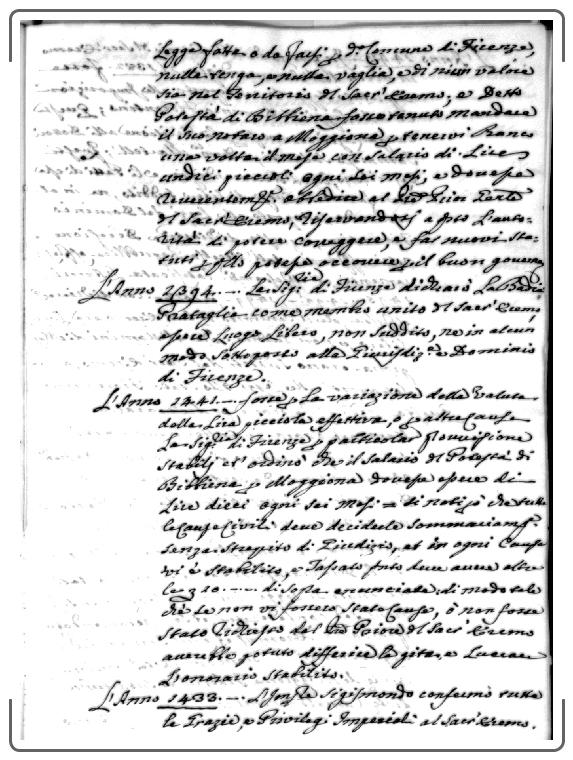 Legge fatta o da farsi p d.º Comune di Firenze,
nulla tenga, e nulla vaglia, e di niun valore
sia nel Territorio dl Sacr' Eremo; e Detto
Potestà di Bibbiena fosse tenuto mandare
il suo notaro a Moggiona p tenervi Banco
una volta il mese con salario di Lire
undici piccioli ogni sei mesi, e dovesse
reverentem.e obbedire al
dl Sacr' Eremo, riservandosi a fato l'auto-
rità di potere correggere, e far nuovi Sta-
tuti, p potesse occorrere p il buon governo
L'Anno 1394. ... La Sig.ria di Firenze dichiarò La Badia
Prataglia come membro unito dl Sacr' Eremo
essere Luogo Libero, non suddito, ne in alcun
modo sottoposto alla Giurisdiz.e e Dominio
di Firenze.
L'Anno 1441. ... forse p La variazione della Valuta
della Lira picciola effettiva, o p altre Cause
La Sig.ria di Firenze p particolar Provvisione
stabilj et ordinò che il salario dl Potestà di
Bibbiena p Moggiona dovesse essere di
Lire dieci ogni sei mesi = di noti p che tutte
le Cause Civili deve deciderle sommariam.e
senza strepito di Giudizio, et in ogni Causa
vi è stabilito, e Tassato deve avere oltre
le 10 ... di sopra enunciate: di modo tale
che se non vi fossero state Cause, o non fosse
stato richiesto dal Priore dl Sacr' Eremo
averebbe potuto differire la gita, e Lucrare
L'onorario stabilito.
L'Anno 1433. ... Sigismondo confermò tutte
le Grazie, e Privilegi Imperiali al Sacr' Eremo.